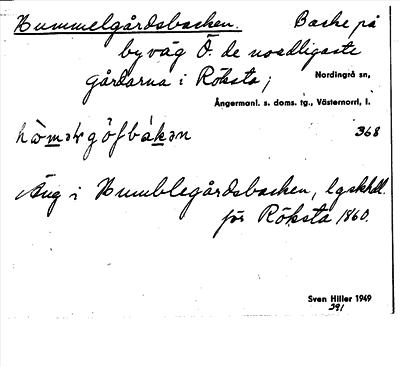 Hummelgårdsbacken. Backe på
byväg Ö. de nordligaste
gårdarna i Röksta; Nordingrå sn,
Ångermanl. s. doms. tg., Västernorrl, l.
368
Äng i Humblegårdsbacken, lgskhdl.
för Röksta 1860.
Sven Hiller 1949
391